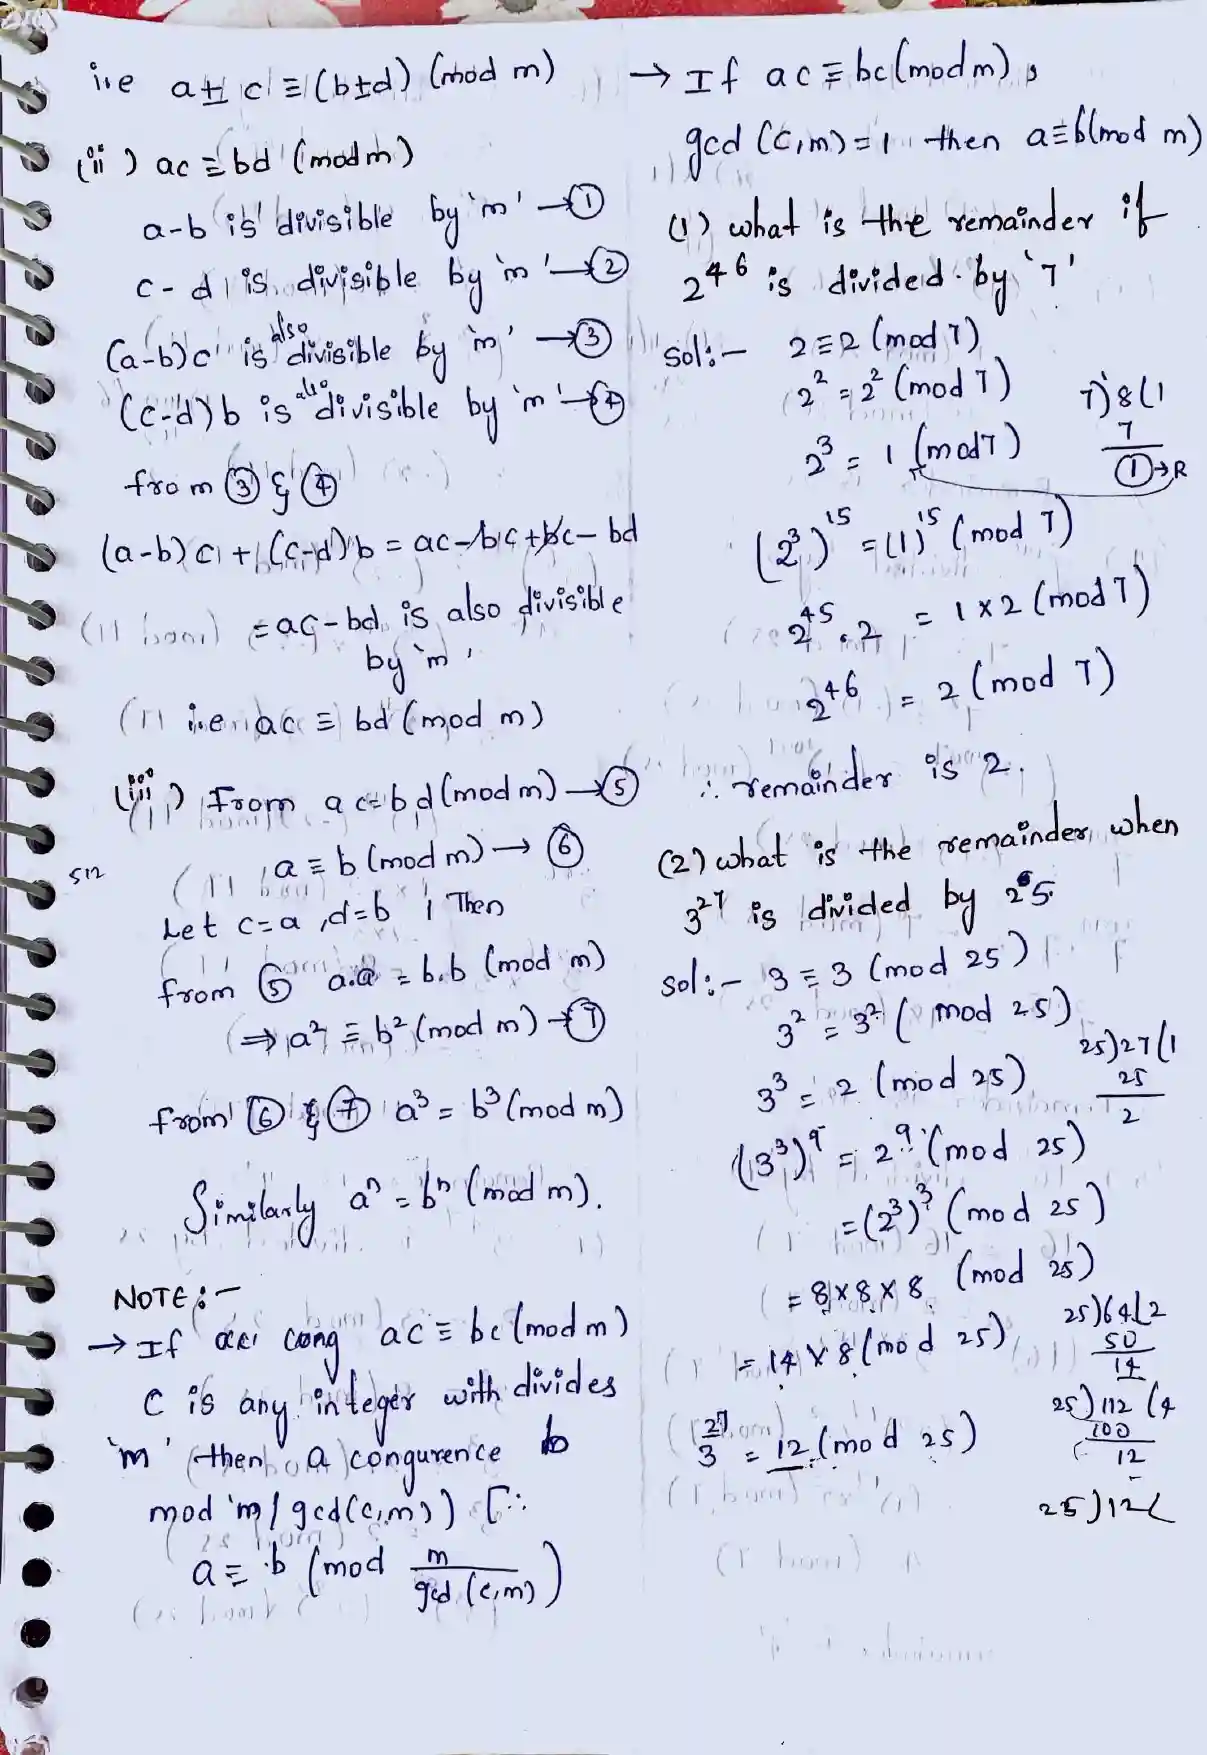 i.e a ± c ≡ (b±d) (mod m)
(ii) ac ≡ bd (mod m)
a-b is divisible by 'm' → ①
c-d is divisible by 'm' → ②
(a-b)c is also divisible by 'm' → ③
(c-d)b is also divisible by 'm' → ④
from ③ & ④
(a-b)c + (c-d)b = ac-bc+bc-bd
= ac-bd is also divisible
by 'm'
i.e ac ≡ bd (mod m)
(iii) From ac=bd (mod m) → ⑤
a ≡ b (mod m) → ⑥
512
Let c=a, d=b, Then
from ⑤ a.a = b.b (mod m)
⇒ a² ≡ b² (mod m) → ⑦
from ⑥ & ⑦ a³ = b³ (mod m)
Similarly aⁿ = bⁿ (mod m).
NOTE:-
→ If cong ac ≡ bc (mod m)
c is any integer with divides
'm' then a congurence b
mod 'm/gcd(c,m)) [∵
a ≡ b (mod m/gcd(c,m))
→ If ac ≡ bc (mod m),
gcd (c,m)=1 then a≡b(mod m)
(1) what is the remainder if
2⁴⁶ is divided by '7'
sol:- 2≡2 (mod 7)
2² = 2² (mod 7) 7)8(1
2³ = 1 (mod 7) 7
①→R
(2³)¹⁵ = (1)¹⁵ (mod 7)
2⁴⁵ . 2 = 1 x 2 (mod 7)
2⁴⁶ = 2 (mod 7)
∴ remainder is 2.
(2) what is the remainder when
3²⁷ is divided by 25.
sol:- 3 ≡ 3 (mod 25)
3² = 3² (mod 25)
25)27(1
3³ = 2 (mod 25) 25
2
(3³)⁹ = 2⁹ (mod 25)
= (2³)³ (mod 25)
= 8x8x8 (mod 25)
25)64(2
= 14 x 8 (mod 25) 50
14
25)112(4
3²⁷ = 12 (mod 25) 100
12
25)12(